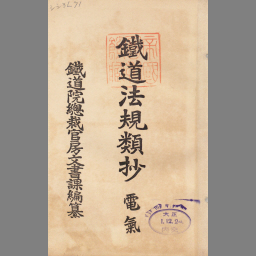 鐵道法規類抄 電氣
鐵道院總裁官房文書課編纂
大正